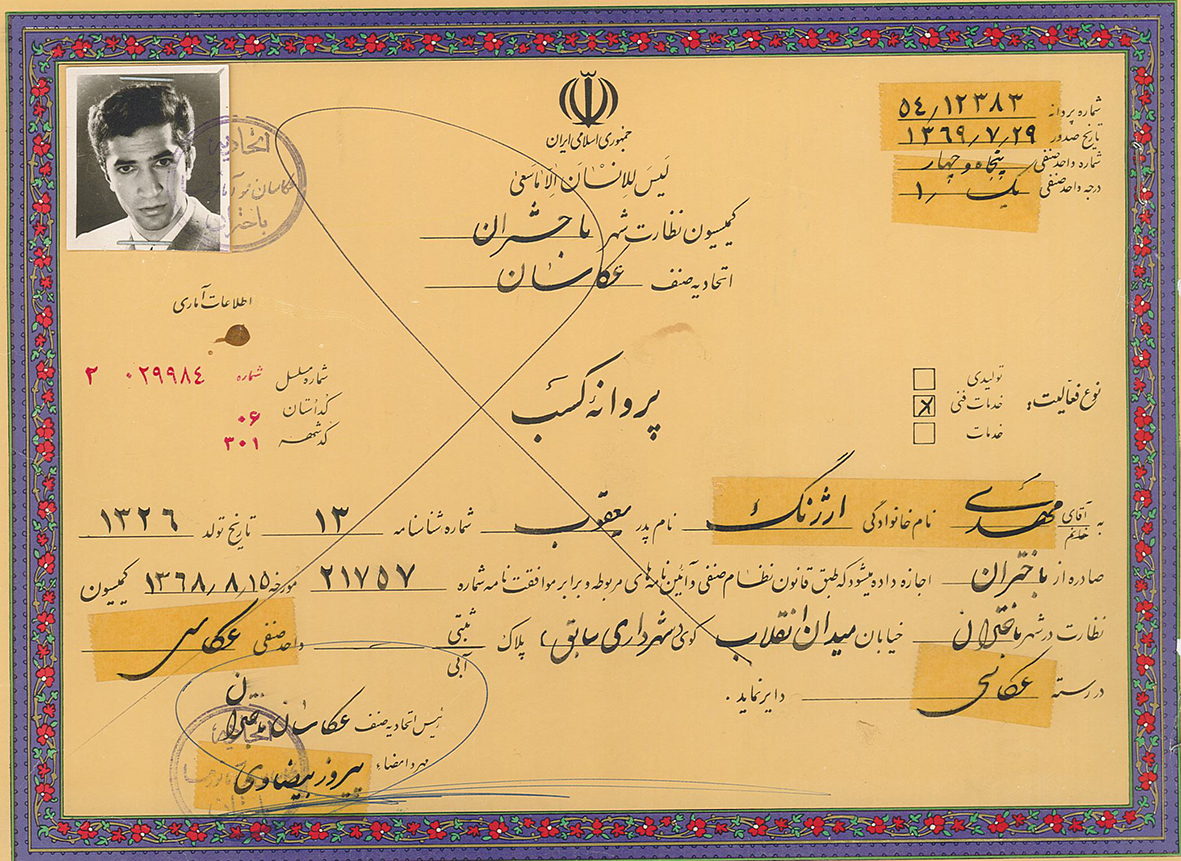 جمهوری اسلامی ایران
لیس للانسان الا ما سعی
کمیسیون نظارت شهر باختران
اتحادیه صنف عکاسان
شماره پروانه ۵۴/۱۲۳۸۳
تاریخ صدور ۱۳۶۹/۷/۲۹
شماره واحد صنفی پنجاه و چهار
درجه واحد صنفی یک /۱
اتحادیه
عکاسان
باختران
اطلاعات آماری
شماره مسلسل شماره ۰۲۹۹۸۴ ۲
کد استان ۰۶
کد شهر ۳۰۱
پروانهٔ کسب
نوع فعالیت:
تولیدی
خدمات فنی X
خدمات
به آقای مهدی نام خانوادگی ارژنگ نام پدر یعقوب شماره شناسنامه ۱۳ تاریخ تولد ۱۳۲۶
خانم
صادره از باختران اجازه داده میشود که طبق قانون نظام صنفی و آئین نامه های مربوطه و برابر موافقت نامه شماره ۲۱۷۵۷ مورخه ۱۳۶۸/۸/۱۵ کمیسیون
نظارت در شهر باختران خیابان میدان انقلاب کوی (شهرداری سابق) پلاک ثبتی واحد صنفی عکاسی
آبی
در رسته عکاسی دایر نماید .
رئیس اتحادیه صنف عکاسان باختران
مهر و امضاء پیروز بیضاوی